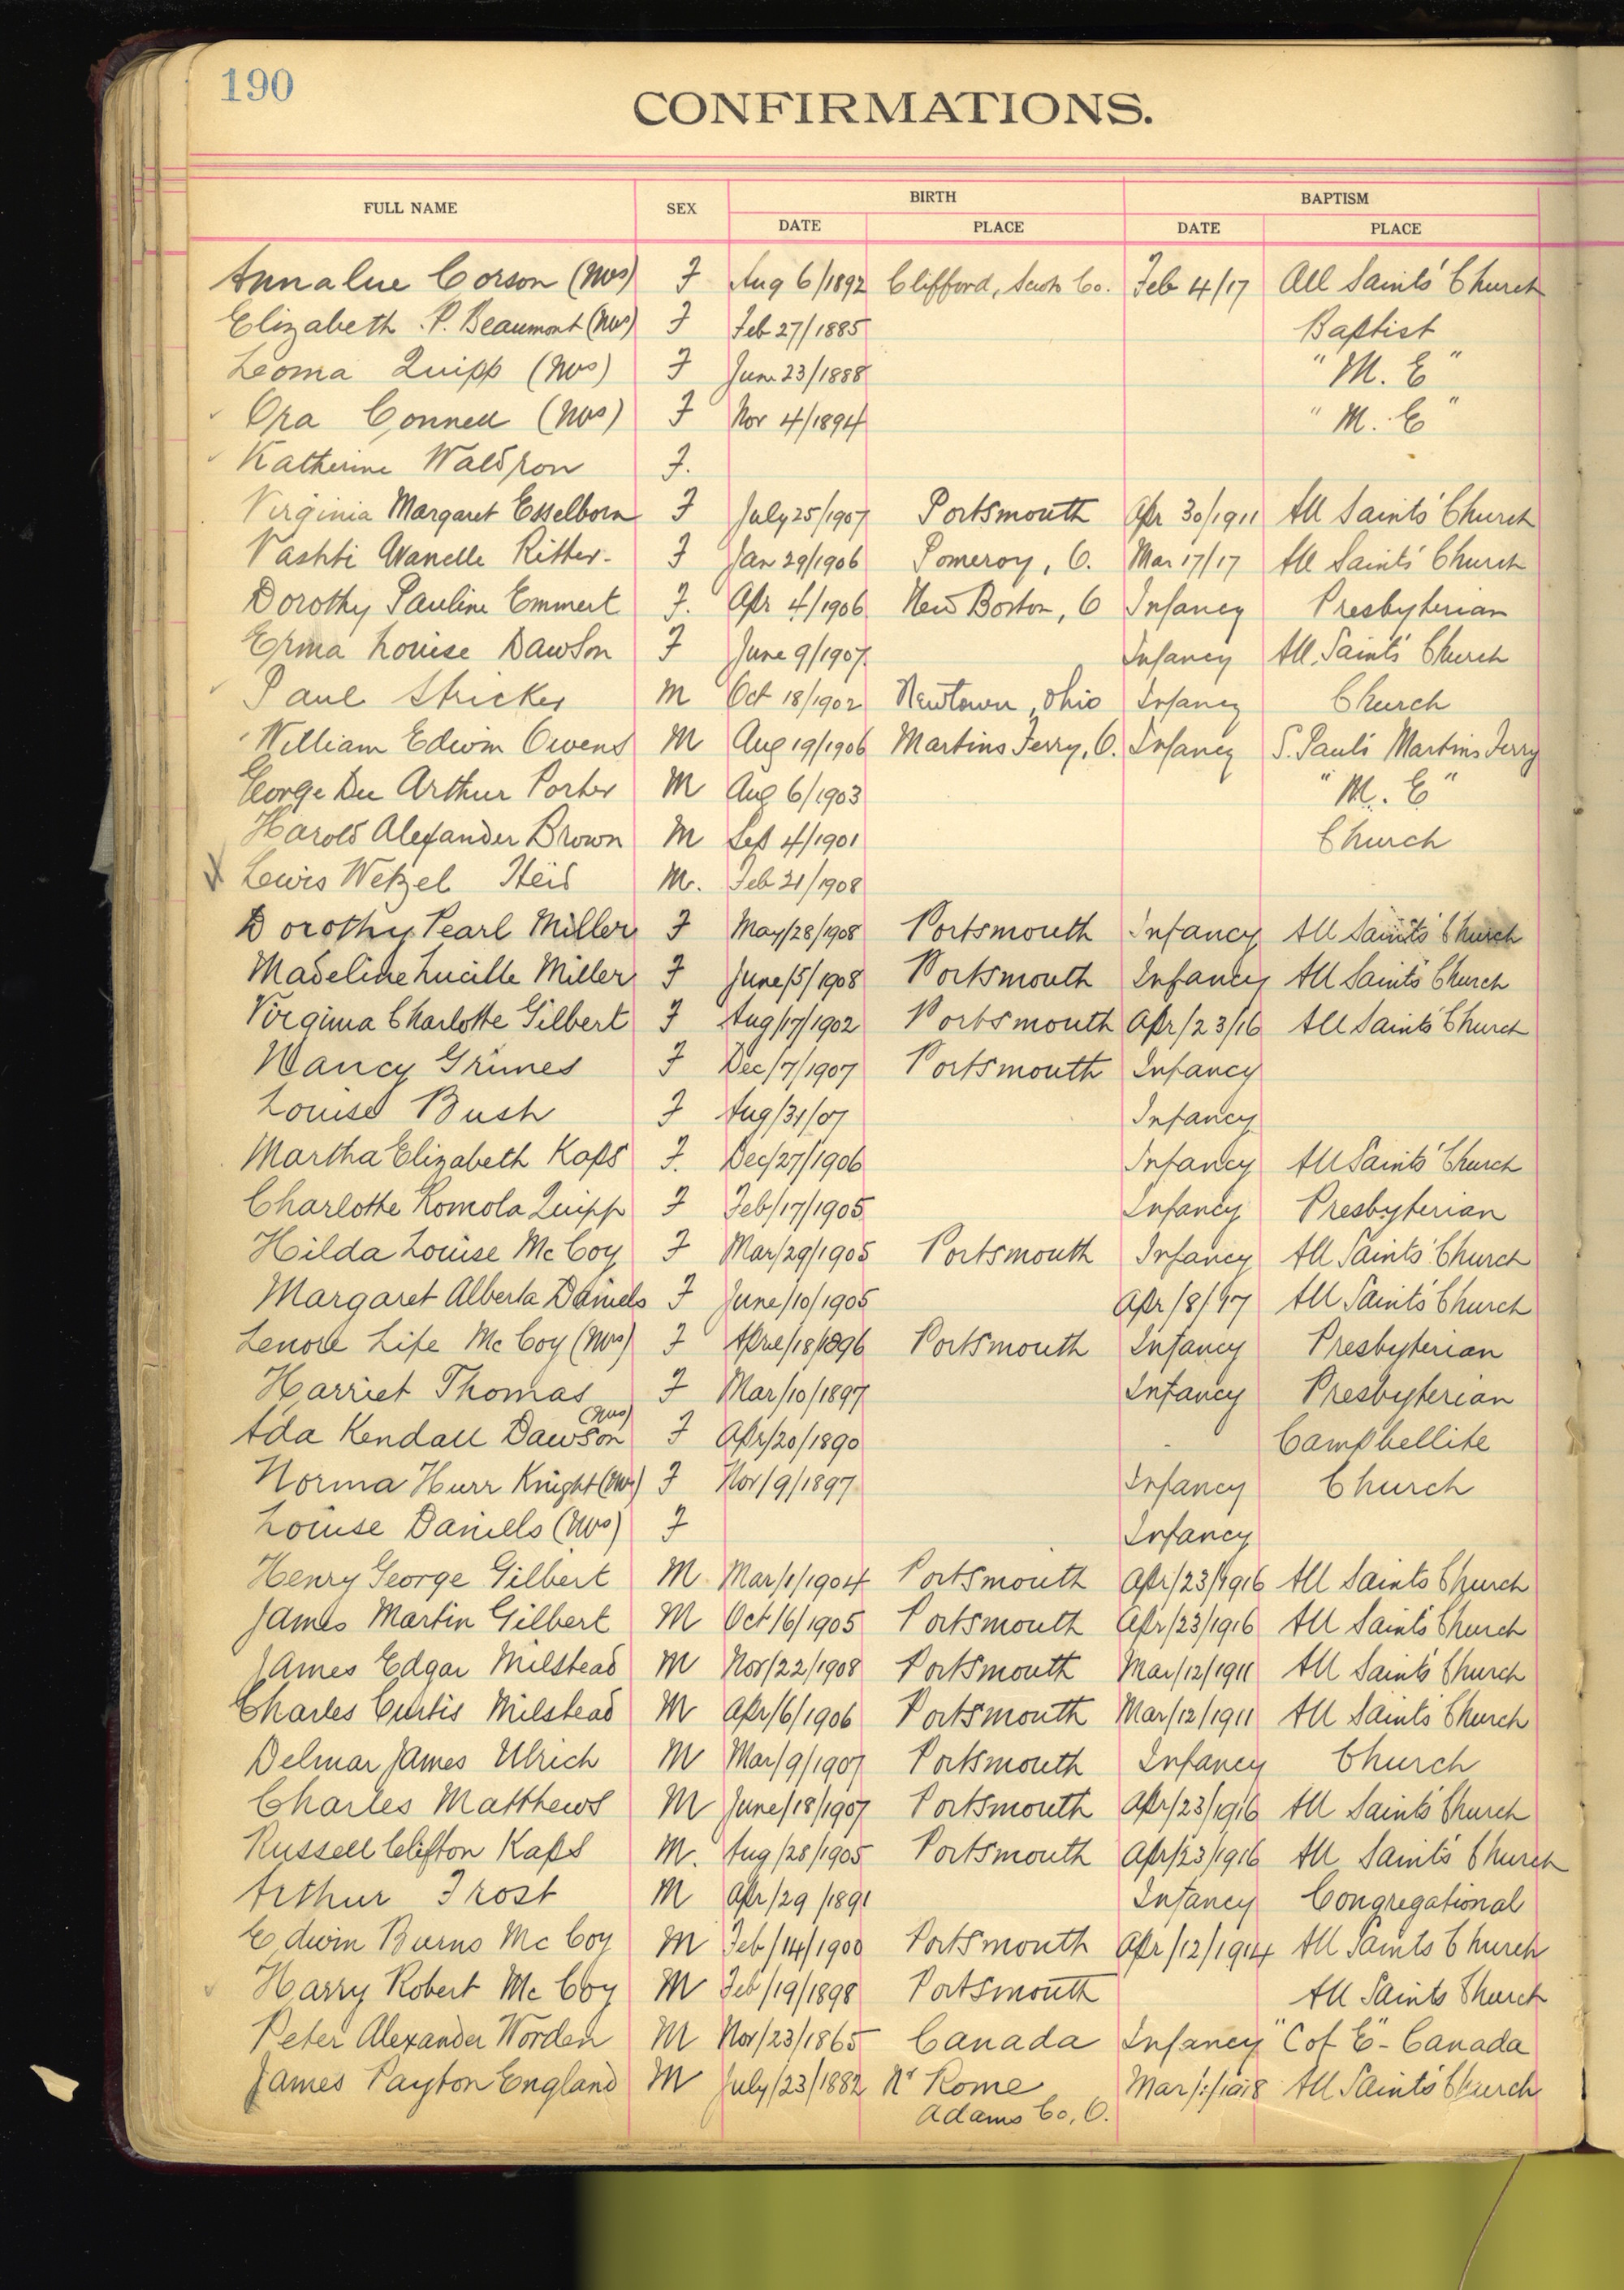 190
CONFIRMATIONS.
FULL NAME SEX BIRTH BAPTISM
DATE PLACE DATE PLACE
Annalue Corson (Mrs) F Aug 6/1892 Clifford, Scioto Co. Feb 4/17 All Saints' Church
Elizabeth P. Beaumont (Mrs) F Feb 27/1885 Baptist
Leoma Quipp (Mrs) F June 23/1888 "M. E"
Ora Connell (Mrs) F Nov 4/1894 "M. E"
Katherine Waldron F.
Virginia Margaret Esselborn F July 25/1907 Portsmouth Apr 30/1911 All Saints' Church
Vashti Wanelle Ritter F Jan 29/1906 Pomeroy, O. Mar 17/17 All Saints' Church
Dorothy Pauline Emmert F. Apr 4/1906 New Boston, O Infancy Presbyterian
Erma Louise Dawson F June 9/1907 Infancy All Saints' Church
Paul Stricker M Oct 18/1902 Newtown, Ohio Infancy Church
William Edwin Owens M Aug 19/1906 Martins Ferry, O. Infancy S. Paul's Martins Ferry
George Arthur Porter M Aug 6/1903 "M. E"
Harold Alexander Brown M Sep 4/1901 Church
Lewis Wetzel Heid M. Feb 21/1908
Dorothy Pearl Miller F May/28/1908 Portsmouth Infancy All Saints' Church
Madeline Lucille Miller F June/5/1908 Portsmouth Infancy All Saints' Church
Virginia Charlotte Gilbert F Aug/17/1902 Portsmouth Apr/23/16 All Saints' Church
Nancy Grimes F Dec/7/1907 Portsmouth Infancy
Louise Bush F Aug/31/07 Infancy
Martha Elizabeth Kaps F. Dec/27/1906 Infancy All Saints' Church
Charlotte Romola Quipp F Feb/17/1905 Infancy Presbyterian
Hilda Louise McCoy F Mar/29/1905 Portsmouth Infancy All Saints' Church
Margaret Alberta Daniels F June/10/1905 Apr/8/17 All Saints' Church
Lenore Life McCoy (Mrs) F Apre/18/1896 Portsmouth Infancy Presbyterian
Harriet Thomas F Mar/10/1897 Infancy Presbyterian
Ada Kendall Dawson (Mrs) F Apr/20/1890 Campbellite
Norma Hurr Knight (Mrs) F Nov/9/1897 Infancy Church
Louise Daniels (Mrs) F Infancy
Henry George Gilbert M Mar/1/1904 Portsmouth Apr/23/1916 All Saints Church
James Martin Gilbert M Oct/6/1905 Portsmouth Apr/23/1916 All Saints' Church
James Edgar Milstead M Nov/22/1908 Portsmouth Mar/12/1911 All Saints' Church
Charles Curtis Milstead M Apr/6/1906 Portsmouth Mar/12/1911 All Saints' Church
Delmar James Ulrich M Mar/9/1907 Portsmouth Infancy Church
Charles Matthews M June/18/1907 Portsmouth Apr/23/1916 All Saints' Church
Russell Clifton Kaps M. Aug/28/1905 Portsmouth Apr/23/1916 All Saint's Church
Arthur Frost M Apr/29/1891 Infancy Congregational
Edwin Burns McCoy M Feb/14/1900 Portsmouth Apr/12/1914 All Saints Church
Harry Robert McCoy M Feb/19/1898 Portsmouth All Saints Church
Peter Alexander Worden M Nov/23/1865 Canada Infancy "C of E" - Canada
James Payton England M July/23/1882 Nr Rome Mar/1/1918 All Saints' Church
Adams Co, O.